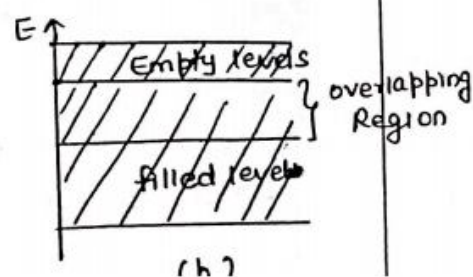 E
Empty levels
overlapping
Region
filled levels
(b)